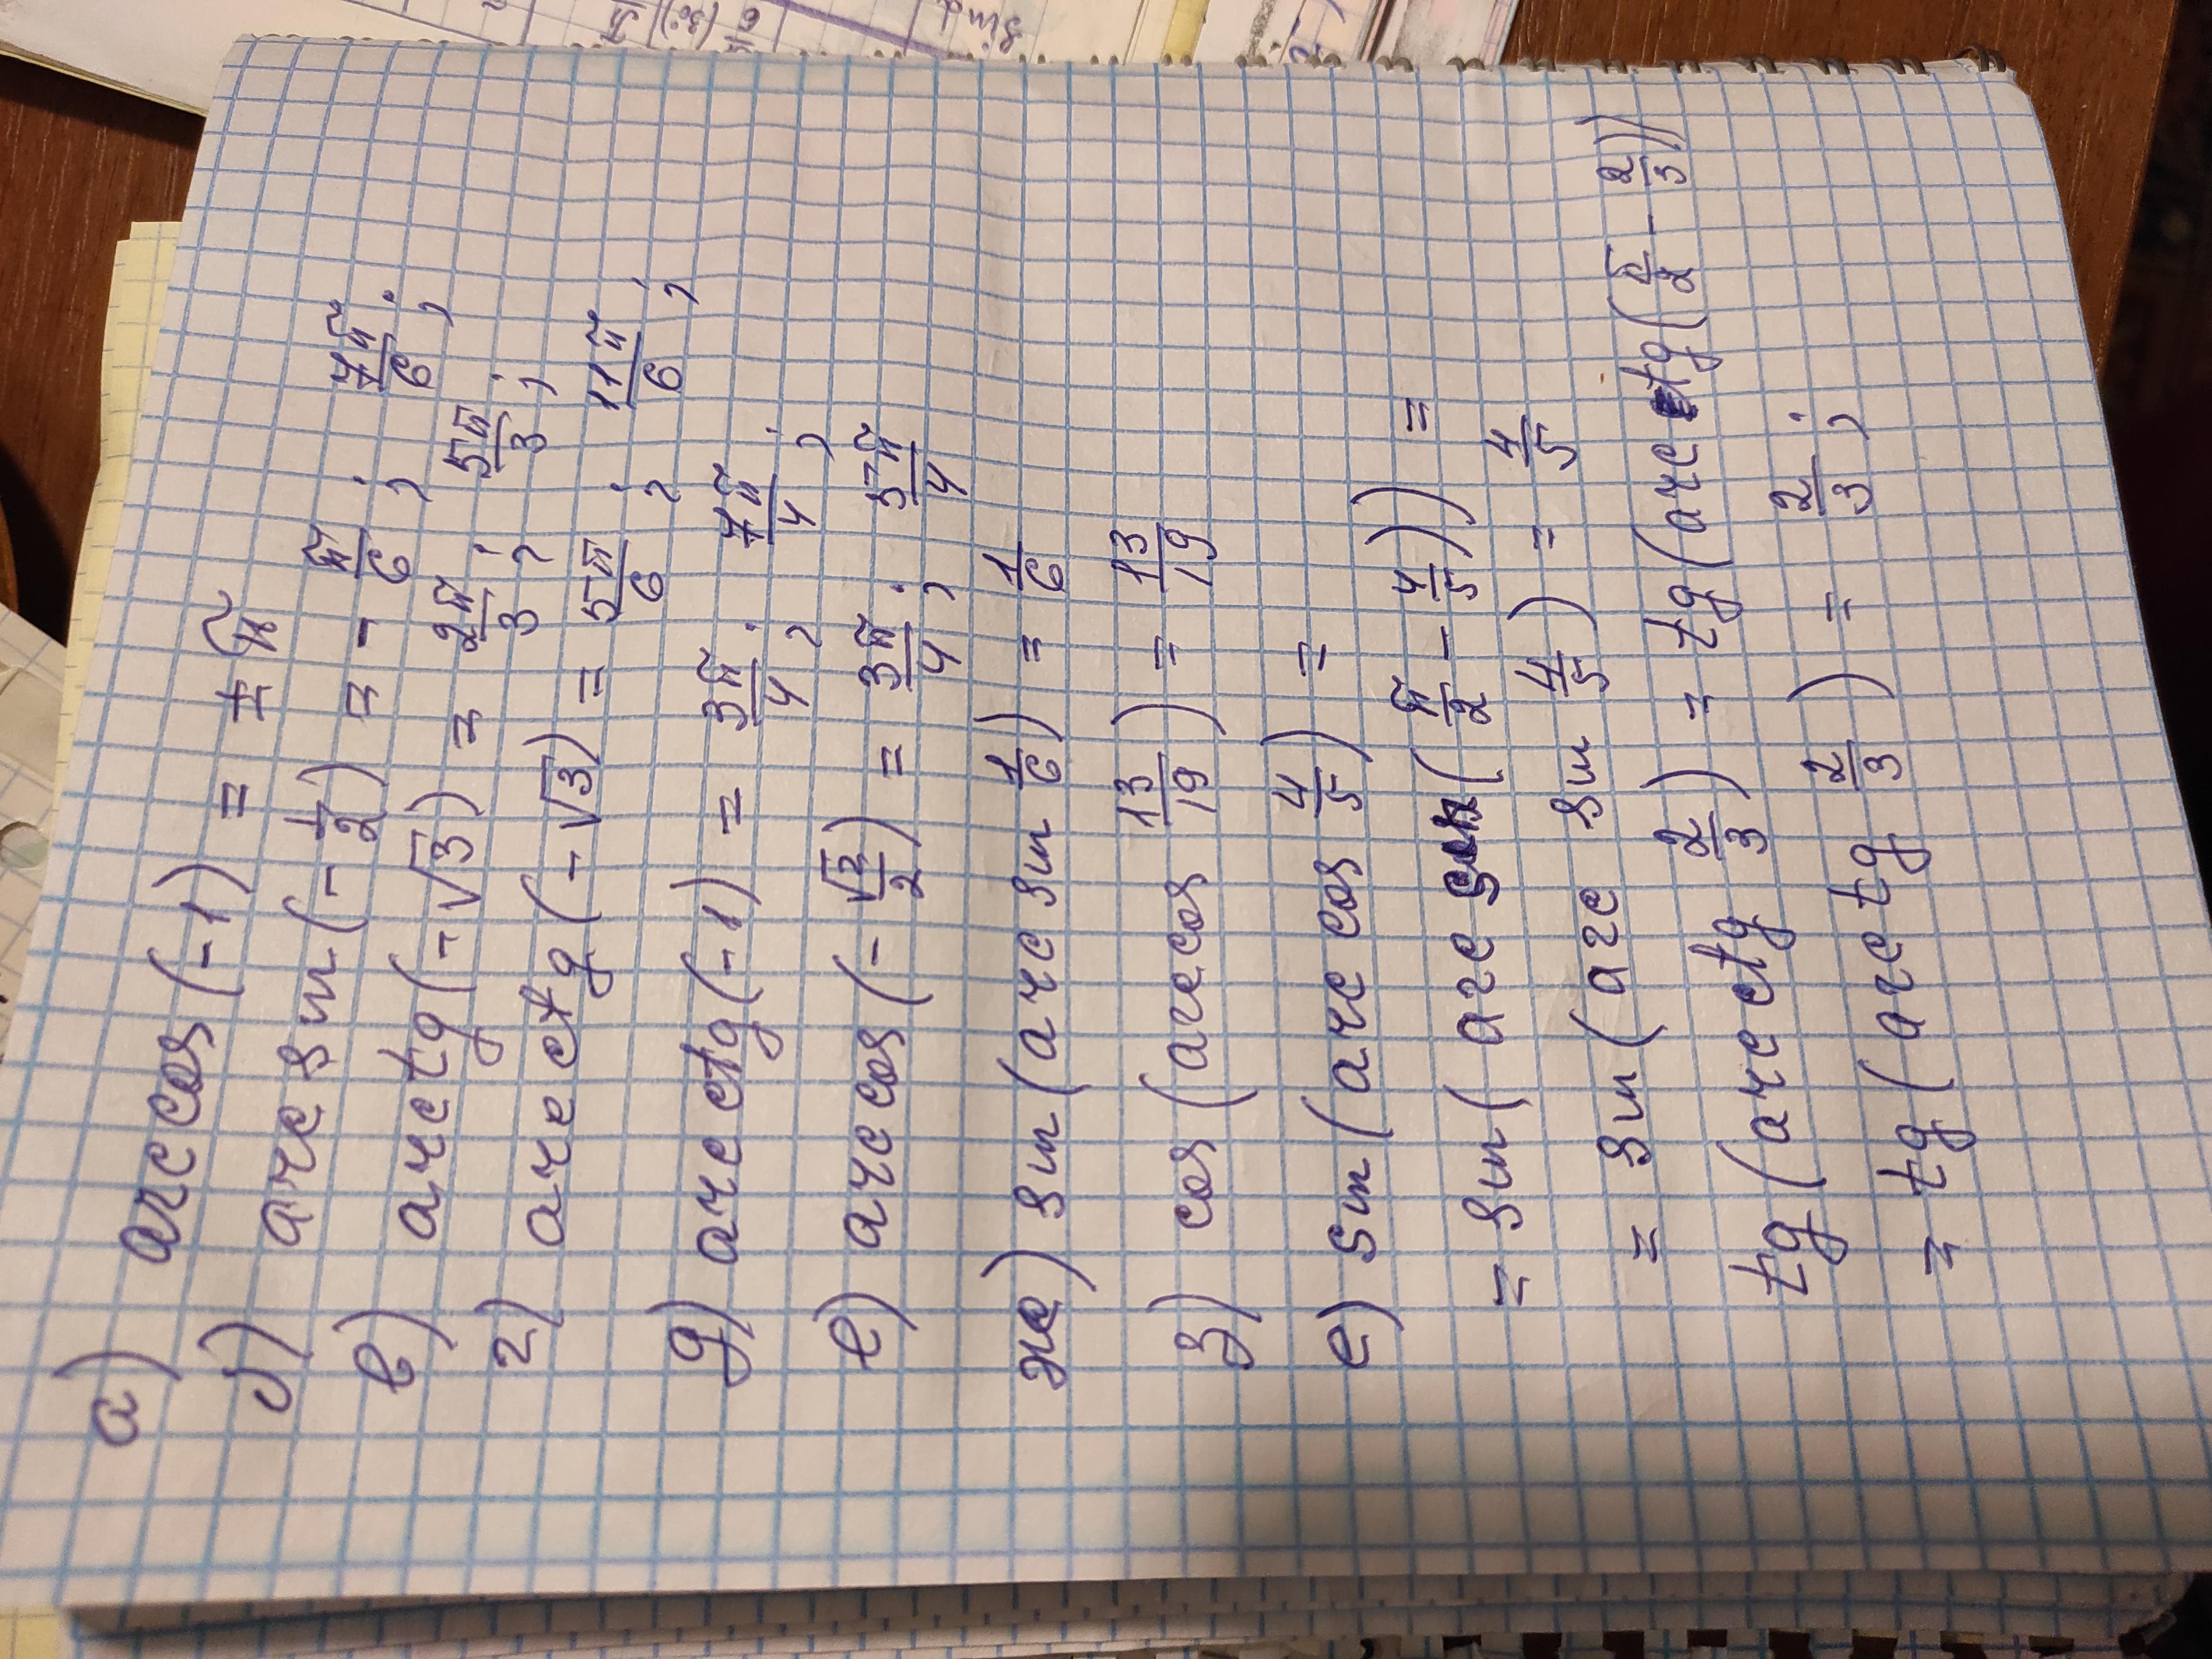 а) arccos(-1) = ±π
б) arcsin(-1/2) = -π/6; 7π/6;
в) arctg(-√3) = 2π/3; 5π/3;
г) arcctg(-√3) = 5π/6; 11π/6;
д) arcctg(-1) = 3π/4; 7π/4;
е) arccos(-√2/2) = 3π/4; 5π/4
ж) sin(arcsin 1/6) = 1/6
з) cos(arccos 13/19) = 13/19
е) sin(arccos 4/5) =
= sin(arc sin(π/2 - 4/5)) =
= sin(arc sin 4/5) = 4/5
tg(arcctg 2/3) = tg(arcctg(π/2 - 2/3))
= tg(arctg 2/3) = 2/3;